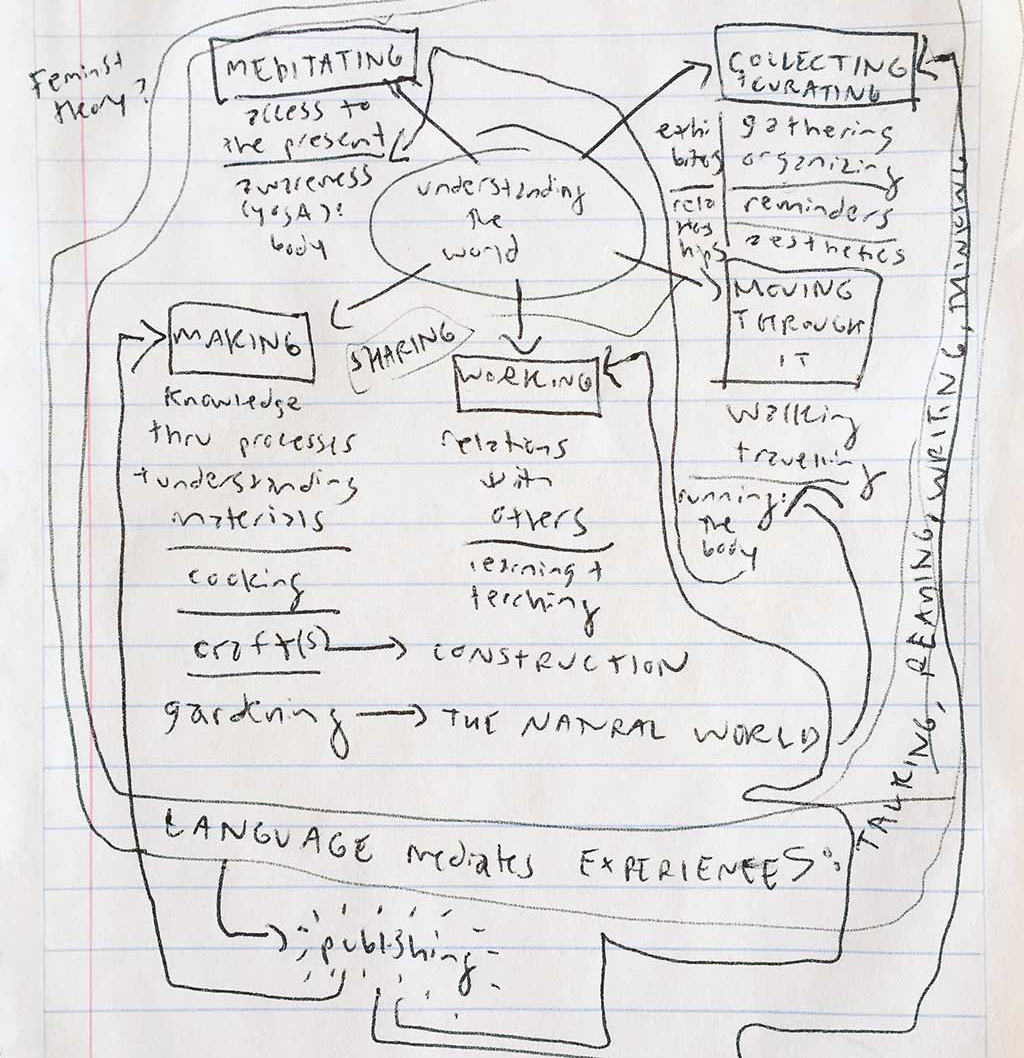 Feminist
theory?
MEDITATING
access to
the present
awareness
(yogA):
body
COLLECTING
+CURATING
exhi
bites
rela
tions
hips
gathering
organizing
reminders
aesthetics
understanding
the
world
MOVING
THROUGH
IT
walking
traveling
running:
the
body
MAKING
knowledge
thru processes
+understanding
materials
cooking
craft(s)
CONSTRUCTION
gardening
THE NATRAL WORLD
SHARING
WORKING
relations
with
others
learning +
teaching
LANGUAGE mediates EXPERIENCES:
TALKING, READING, WRITING, MINING
publishing